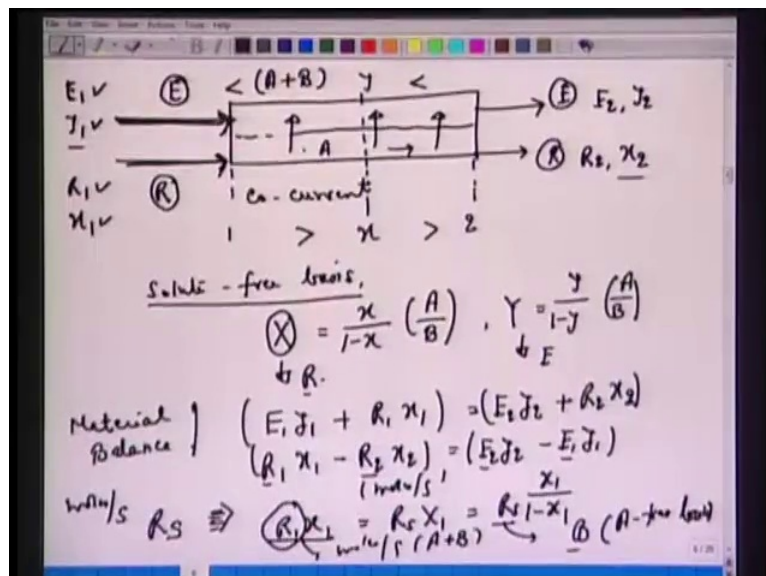 File Edit View Insert Actions Tools Help
E₁✓ (E) < (A+B) y < (E) E₂, y₂
y₁✓
A →
(R) R₂, x₂
R₁✓ (R) co-current
x₁✓ 1 > x > 2
Solute-free basis,
(X) = x/(1-x) (A/B), Y = y/(1-y) (A/B)
↓ R. ↓ E
Material Balance } (E₁y₁ + R₁x₁) = (E₂y₂ + R₂x₂)
(R₁x₁ - R₂x₂) = (E₂y₂ - E₁y₁)
(moles/s)
moles/s Rs ⇒ (R₁)x₁ = Rs X₁ = Rs x₁/(1-x₁)
moles/s (A+B) → B (A-free basis)